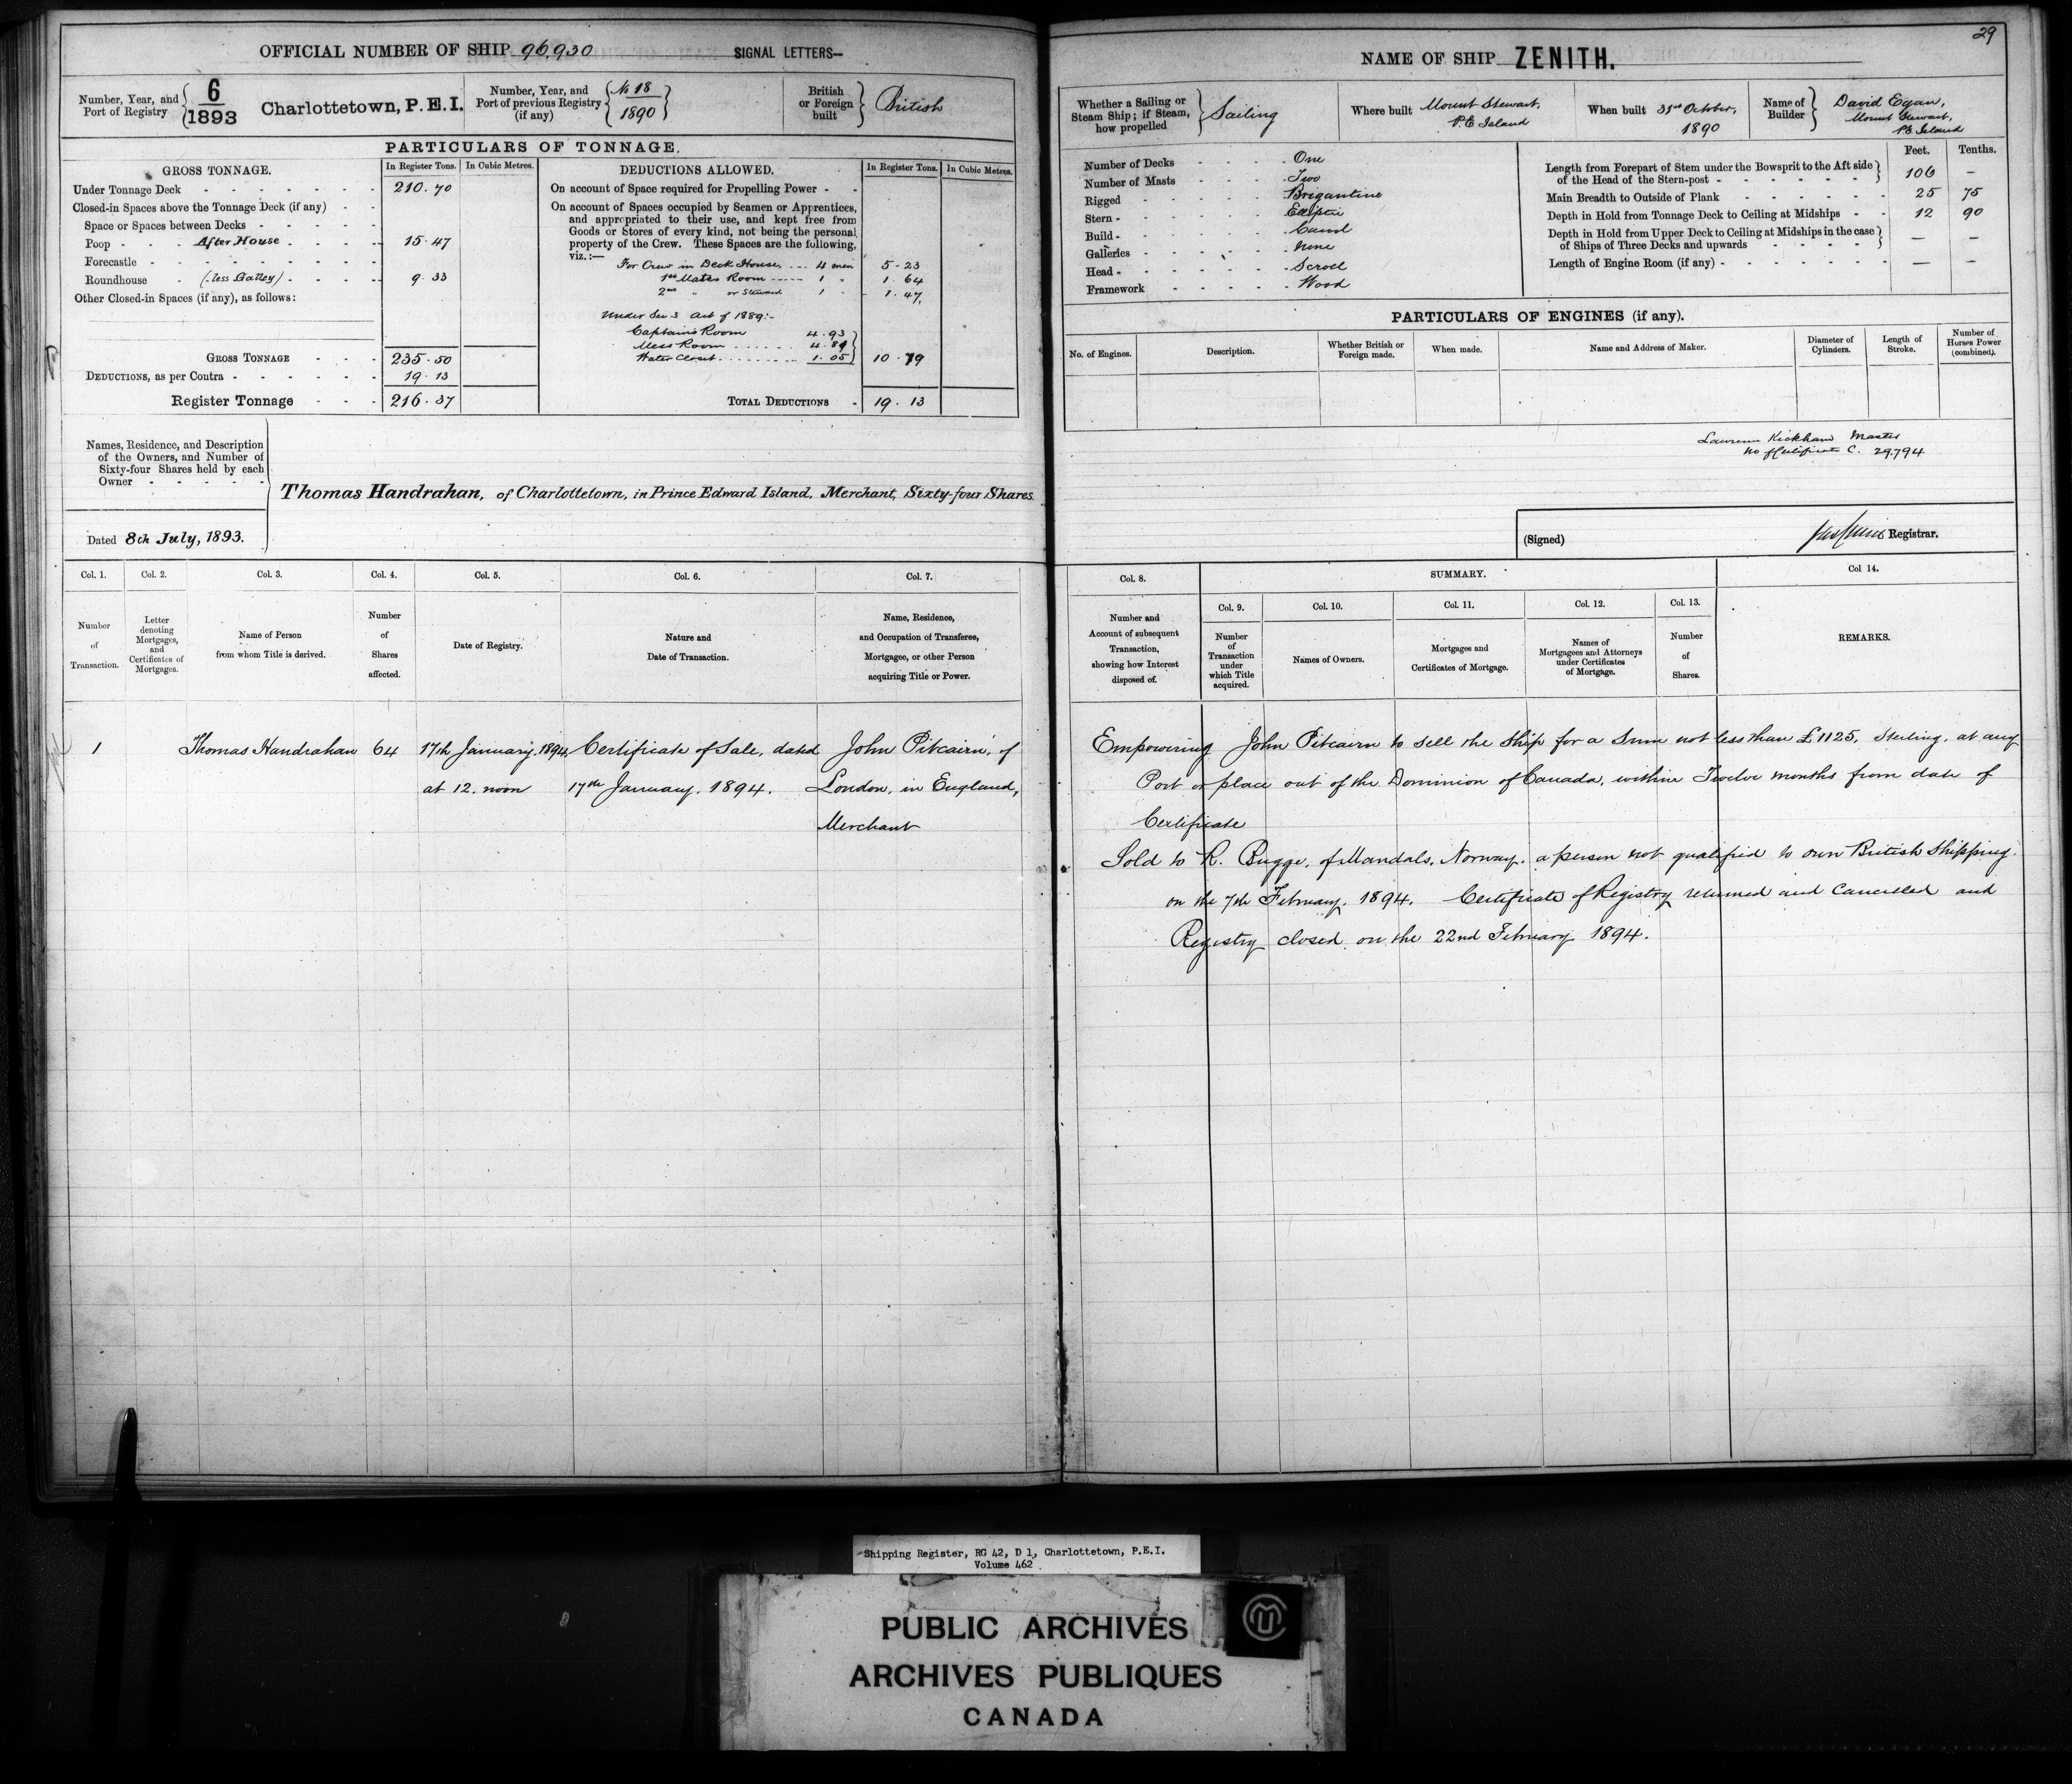 OFFICIAL NUMBER OF SHIP 96,930 SIGNAL LETTERS—
Number, Year, and Port of Registry { 6 / 1893 Charlottetown, P.E.I.
Number, Year, and Port of previous Registry (if any) { No 18 / 1890 }
British or Foreign built } British
PARTICULARS OF TONNAGE.
GROSS TONNAGE. In Register Tons. In Cubic Metres.
Under Tonnage Deck - - - - - - - 210.70
Closed-in Spaces above the Tonnage Deck (if any) - -
Space or Spaces between Decks - - - - -
Poop - - - After House - - - - 15.47
Forecastle - - - - - - - - -
Roundhouse - (less Galley) - - - - 9.33
Other Closed-in Spaces (if any), as follows:
GROSS TONNAGE - - - 235.50
DEDUCTIONS, as per Contra - - - - - - 19.13
Register Tonnage - - - 216.37
DEDUCTIONS ALLOWED. In Register Tons. In Cubic Metres.
On account of Space required for Propelling Power - -
On account of Spaces occupied by Seamen or Apprentices,
and appropriated to their use, and kept free from
Goods or Stores of every kind, not being the personal
property of the Crew. These Spaces are the following,
viz.:—
For Crew in Deck House, ... 4 men 5.23
1st Mates Room ..... 1 " 1.64
2nd " or Steward 1 " 1.47
Under Sec 3 Act of 1889:-
Captain's Room 4.93
Mess Room ...... 4.81
Water Closet ......... 1.05 } 10.79
TOTAL DEDUCTIONS - 19.13
Names, Residence, and Description
of the Owners, and Number of
Sixty-four Shares held by each
Owner - - - - -
Thomas Handrahan, of Charlottetown, in Prince Edward Island, Merchant, Sixty-four Shares.
Dated 8th July, 1893.
Col. 1. Col. 2. Col. 3. Col. 4. Col. 5. Col. 6. Col. 7.
Number of Transaction.
Letter denoting Mortgages, and Certificates of Mortgages.
Name of Person from whom Title is derived.
Number of Shares affected.
Date of Registry.
Nature and Date of Transaction.
Name, Residence, and Occupation of Transferee, Mortgagee, or other Person acquiring Title or Power.
1 Thomas Handrahan 64 17th January, 1894, Certificate of Sale, dated John Pitcairn, of
at 12. noon 17th January, 1894. London, in England,
Merchant
29
NAME OF SHIP ZENITH.
Whether a Sailing or Steam Ship; if Steam, how propelled } Sailing
Where built Mount Stewart, P.E Island
When built 31st October, 1890
Name of Builder } David Egan, Mount Stewart, P.E Island
Number of Decks - - - - One
Number of Masts - - - - Two
Rigged - - - - - Brigantine
Stern - - - - - - Elliptic
Build - - - - - - Carvel
Galleries - - - - - None
Head - - - - - - Scroll
Framework - - - - - Wood
Feet. Tenths.
Length from Forepart of Stem under the Bowsprit to the Aft side
of the Head of the Stern-post - - - - - - } 106 —
Main Breadth to Outside of Plank - - - - - - 25 75
Depth in Hold from Tonnage Deck to Ceiling at Midships - - 12 90
Depth in Hold from Upper Deck to Ceiling at Midships in the case
of Ships of Three Decks and upwards - - - - } — —
Length of Engine Room (if any) - - - - - - - — —
PARTICULARS OF ENGINES (if any).
No. of Engines. Description. Whether British or Foreign made. When made. Name and Address of Maker. Diameter of Cylinders. Length of Stroke. Number of Horses Power (combined).
Kickham Master
No of Certificate C. 29,794
(Signed) Registrar.
Col. 8. SUMMARY. Col 14.
Col. 9. Col. 10. Col. 11. Col. 12. Col. 13.
Number and Account of subsequent Transaction, showing how Interest disposed of.
Number of Transaction under which Title acquired.
Names of Owners.
Mortgages and Certificates of Mortgage.
Names of Mortgagees and Attorneys under Certificates of Mortgage.
Number of Shares.
REMARKS.
Empowering John Pitcairn to sell the Ship for a Sum not less than £1125, Sterling, at any
Port or place out of the Dominion of Canada, within Twelve months from date of
Certificate
Sold to R. Bugge, of Mandals, Norway, a person not qualified to own British Shipping.
on the 7th February, 1894. Certificate of Registry returned and cancelled and
Registry closed on the 22nd February 1894.
Shipping Register, RG 42, D 1, Charlottetown, P.E.I.
Volume 462
PUBLIC ARCHIVES
ARCHIVES PUBLIQUES
CANADA